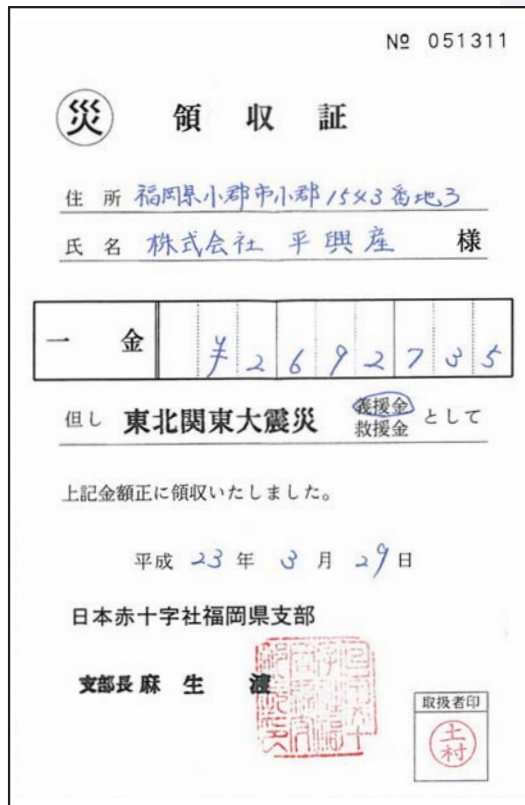 № 051311
災 領収証
住所 福岡県小郡市小郡1543番地3
氏名 株式会社 平興産 様
一金 ¥2692735
但し 東北関東大震災 義援金 救援金 として
上記金額正に領収いたしました。
平成 23 年 3 月 29 日
日本赤十字社福岡県支部
支部長 麻生 渡
取扱者印
土村